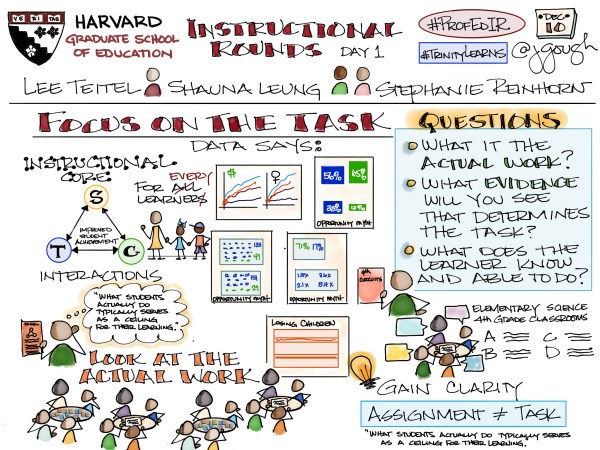 VE RI TAS
HARVARD
GRADUATE SCHOOL
OF EDUCATION
INSTRUCTIONAL
ROUNDS DAY 1
#PROFEDIR
#TRINITYLEARNS
DEC
10
@jgough
LEE TEITEL
SHAUNA LEUNG
STEPHANIE REINHORN
FOCUS ON THE TASK
DATA SAYS:
INSTRUCTIONAL
CORE:
S
T
C
IMPROVED
STUDENT
ACHIEVEMENT
INTERACTIONS
EVERY
FOR ALL
LEARNERS
$
56%
65%
38%
12%
OPPORTUNITY MYTH
OPPORTUNITY MYTH
71% 17%
OPPORTUNITY MYTH
LOSING CHILDREN
QUESTIONS
WHAT IT THE
ACTUAL WORK?
WHAT EVIDENCE
WILL YOU SEE
THAT DETERMINES
THE TASK?
WHAT DOES THE
LEARNER KNOW
AND ABLE TO DO?
4th
CIRCUITS
ELEMENTARY SCIENCE
4TH GRADE CLASSROOMS
A
B
C
D
"WHAT STUDENTS
ACTUALLY DO
TYPICALLY SERVES
AS A CEILING
FOR THEIR LEARNING."
LOOK AT THE
ACTUAL WORK
GAIN CLARITY
ASSIGNMENT ≠ TASK
"WHAT STUDENTS ACTUALLY DO TYPICALLY SERVES
AS A CEILING FOR THEIR LEARNING."